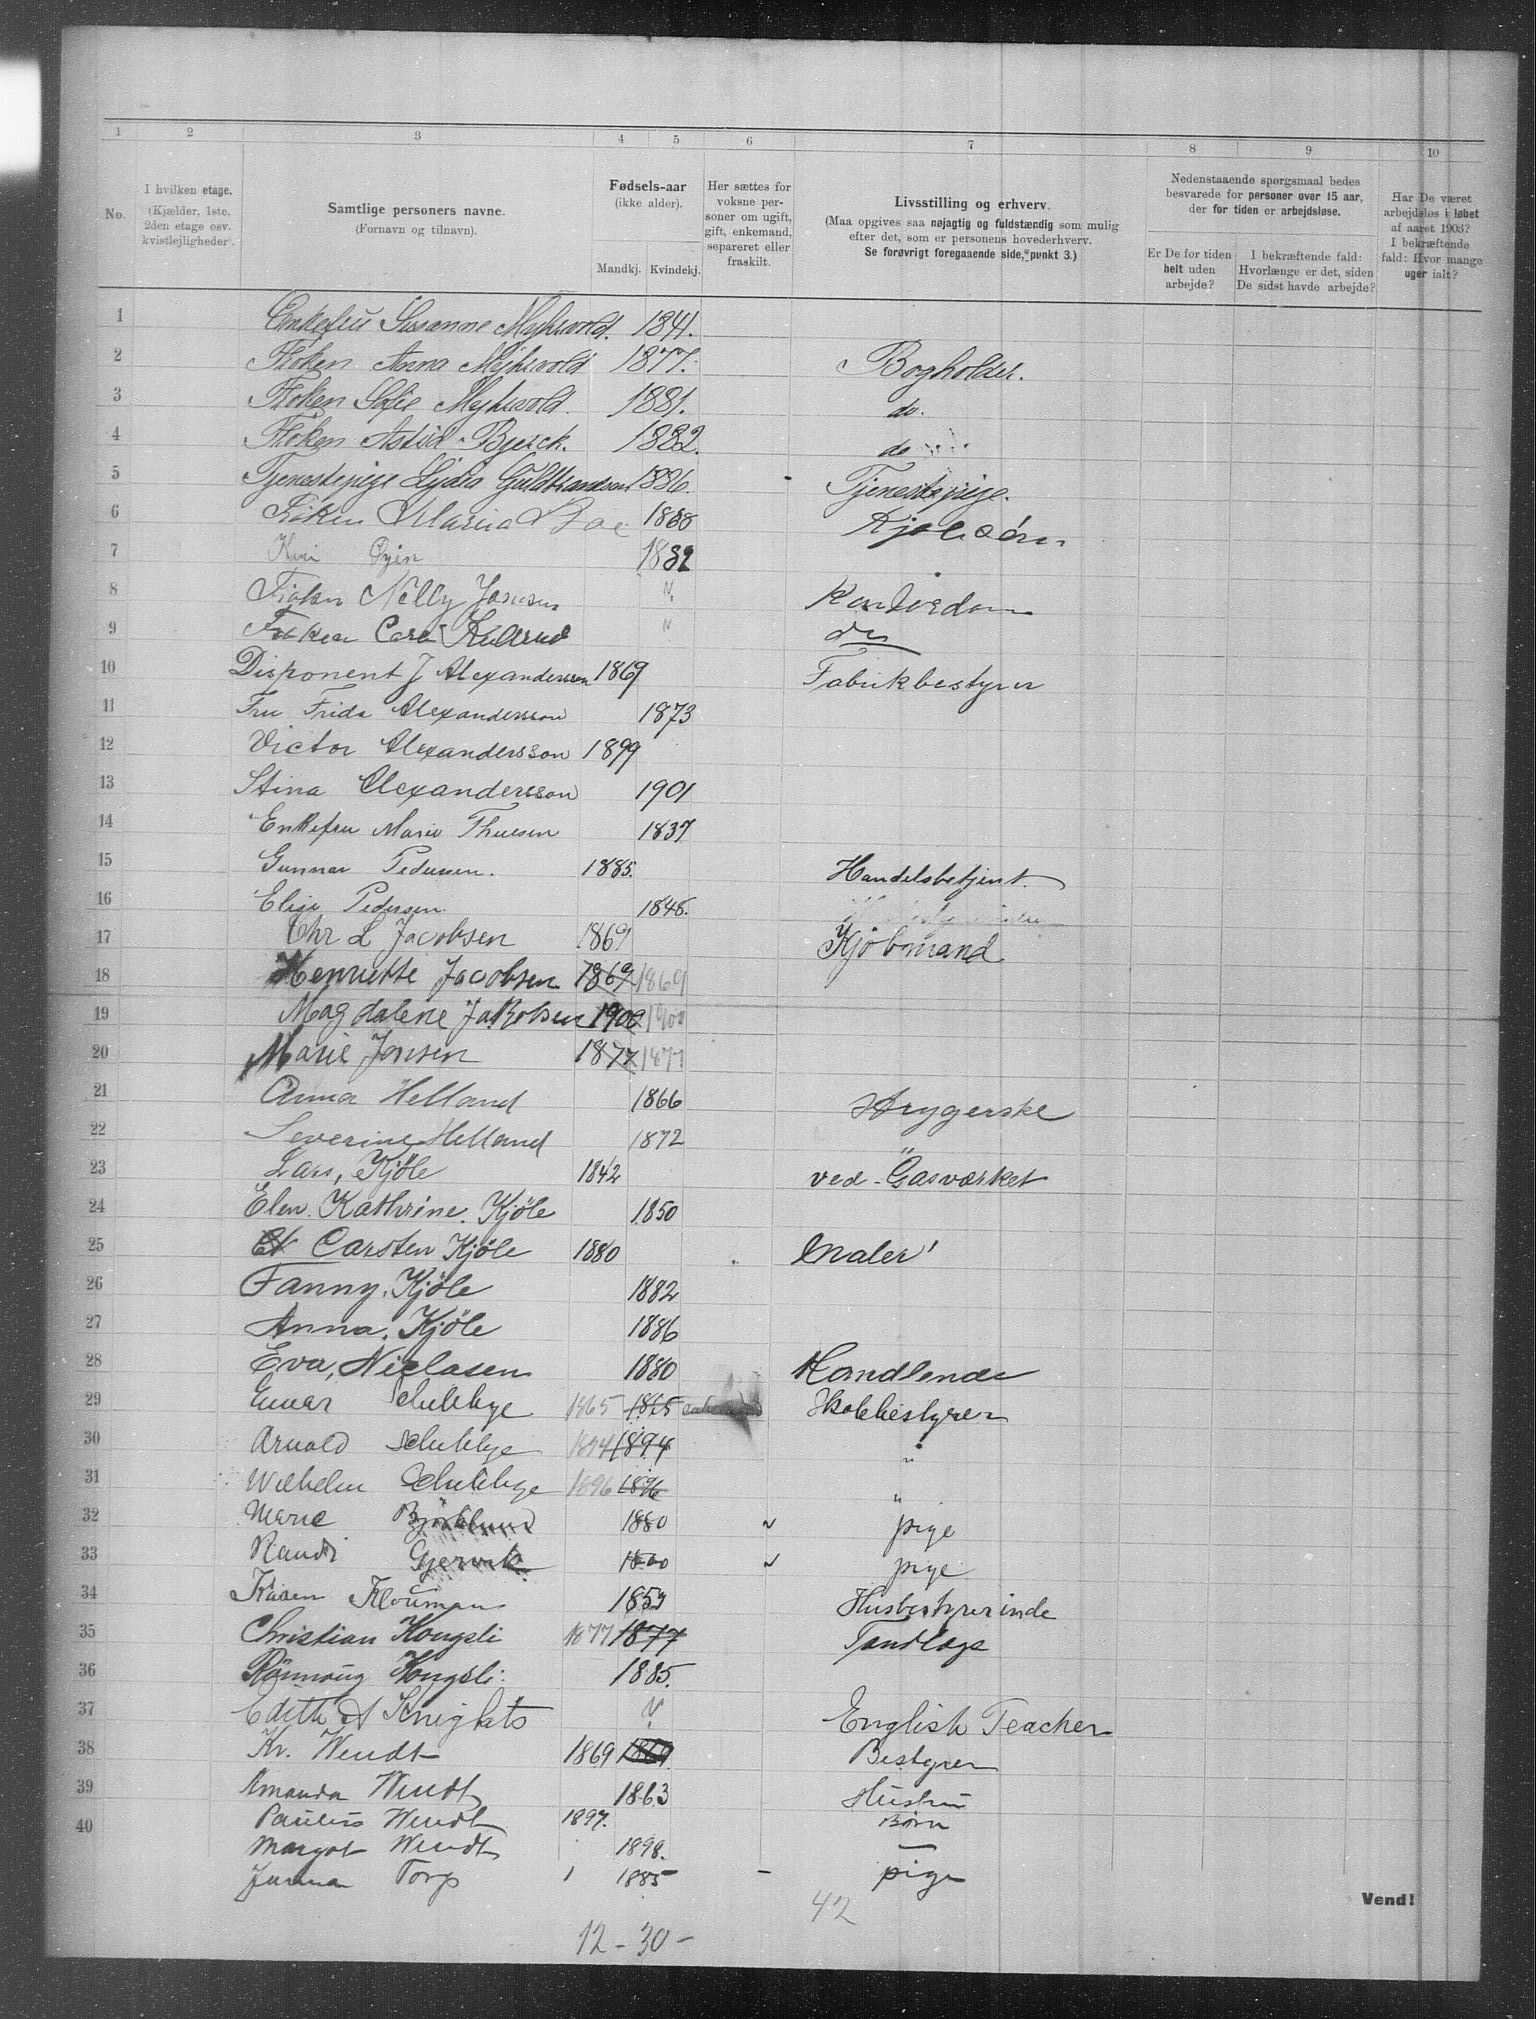 1 2 3 4 5 6 7 8 9 10
No.
I hvilken etage.
(Kjælder, 1ste, 2den etage osv. kvistlejligheder).
Samtlige personers navne.
(Fornavn og tilnavn).
Fødsels-aar
(ikke alder).
Mandkj. Kvindekj.
Her sættes for voksne personer om ugift, gift, enkemand, separeret eller fraskilt.
Livsstilling og erhverv.
(Maa opgives saa nøjagtig og fuldstændig som mulig efter det, som er personens hovederhverv.
Se forøvrigt foregaaende side, punkt 3.)
Nedenstaaende spørgsmaal bedes besvarede for personer over 15 aar, der for tiden er arbejdsløse.
Er De for tiden helt uden arbejde?
I bekræftende fald: Hvorlænge er det, siden De sidst havde arbejde?
Har De været arbejdsløs i løbet af aaret 1903? I bekræftende fald: Hvor mange uger ialt?
1 Enkefru Susanne Myhrvold. 1841.
2 Frøken Anna Myhrvold 1877. Bogholder.
3 Frøken Sofie Myhrvold. 1881. do.
4 Frøken Astrid Bjerck. 1882. do
5 Tjenestepige Lydia Guldbrandsen 1886. Tjenestepige.
6 Frøken Maria Boe 1868
7 1882
8 Frøken Nelly Jansen Kontordame
9 Frøken Cara do
10 Disponent J Alexandersson 1869 Fabrikbestyrer
11 Fru Frida Alexandersson 1873
12 Victor Alexandersson 1899
13 Stina Alexandersson 1901
14 Enkefru Marie Thuesen 1837
15 Gunnar Pedersen. 1885. Handelsbetjent.
16 Elise Pedersen 1848.
17 Chr L Jacobsen 1869 Kjøbmand
18 Henriette Jacobsen 1869 1869
19 Magdalene Jakobsen 1900 1900
20 Marie Jonsen 1877 1877
21 Anna Helland 1866 Strygerske
22 Severine Helland 1872 "
23 Lars, Kjöle 1842 ved Gasværket
24 Elen. Kathrine. Kjöle 1850
25 Carsten Kjöle 1880 Maler
26 Fanny, Kjöle 1882
27 Anna, Kjöle 1886
28 Eva, Niclasen 1880 Handlende
29 Einar Schibbye 1865 1865 Skolebestyrer
30 Arnold Schibbye 1894 1894 "
31 Wilhelm Schibbye 1896 1896 "
32 Marie Björklund 1880 pige
33 Randi Gjervik 1880 pige
34 Karen Klouman 1853 Husbestyrerinde
35 Christian Kongsli 1877 1877 Tandlæge
36 Rönnaug Kongsli 1885.
37 Edith A Knights English Teacher
38 Kr. Wendt 1869 1869 Bestyrer
39 Amanda Wendt 1863 Hustru
40 Paulus Wendt 1897. Børn
Margot Wendt 1898. —
Torp 1885 pige
Vend!
42
12 - 30 -